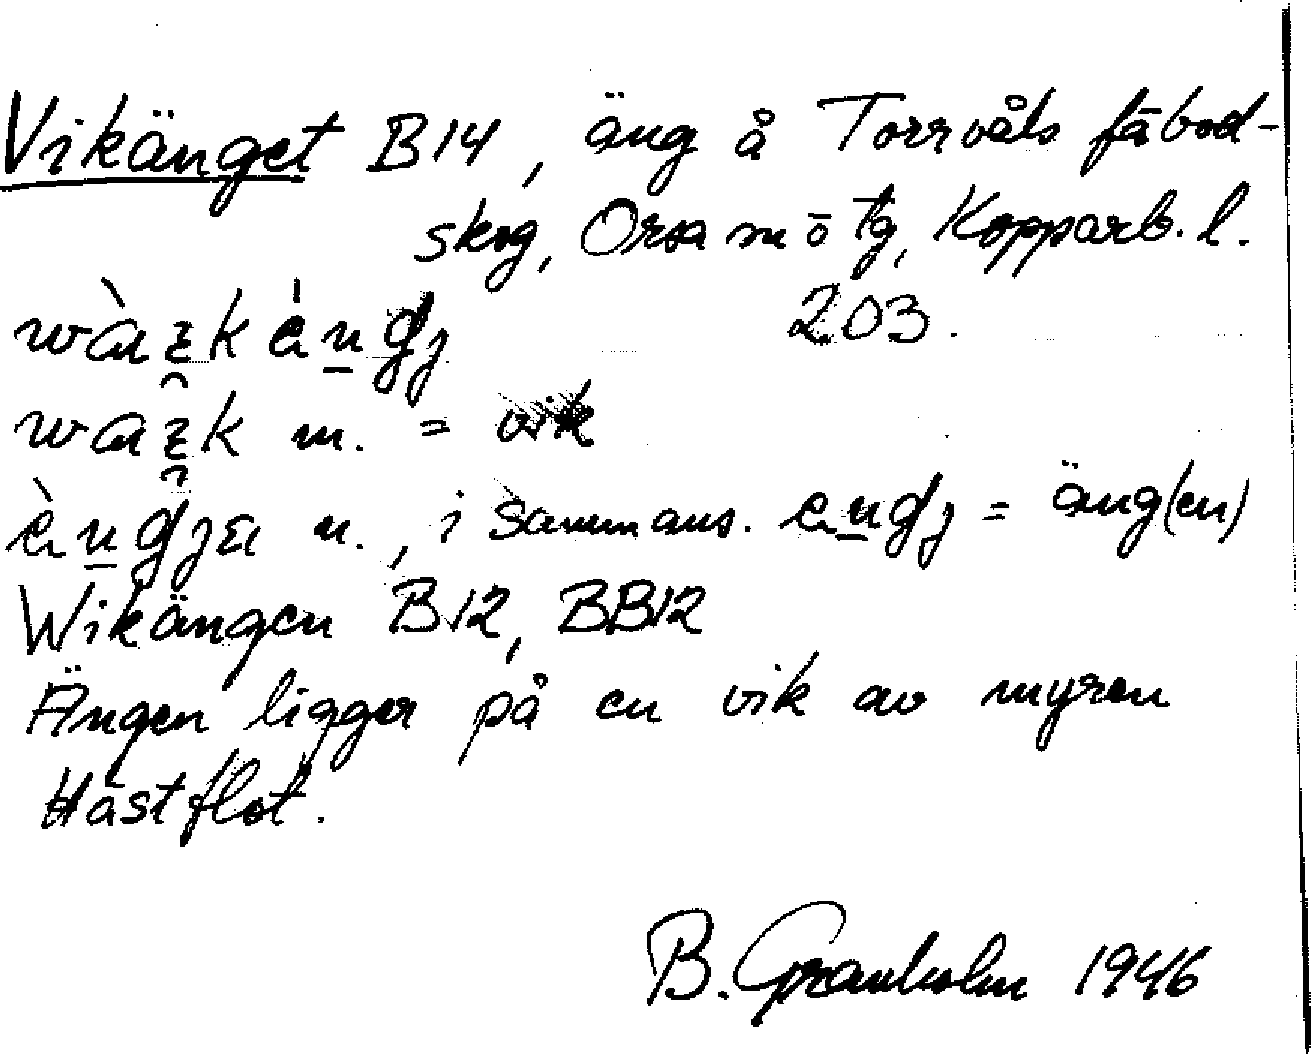 Vikänget B14, äng å Torrvåls fäbod-
skog, Orsa sn ö tg, Kopparb. l.
203.
m. = vik
n., i sammans. = äng(en)
Wikängen B12, BB12
Ängen ligger på en vik av myren
Hästflot.
B. Granholm 1946